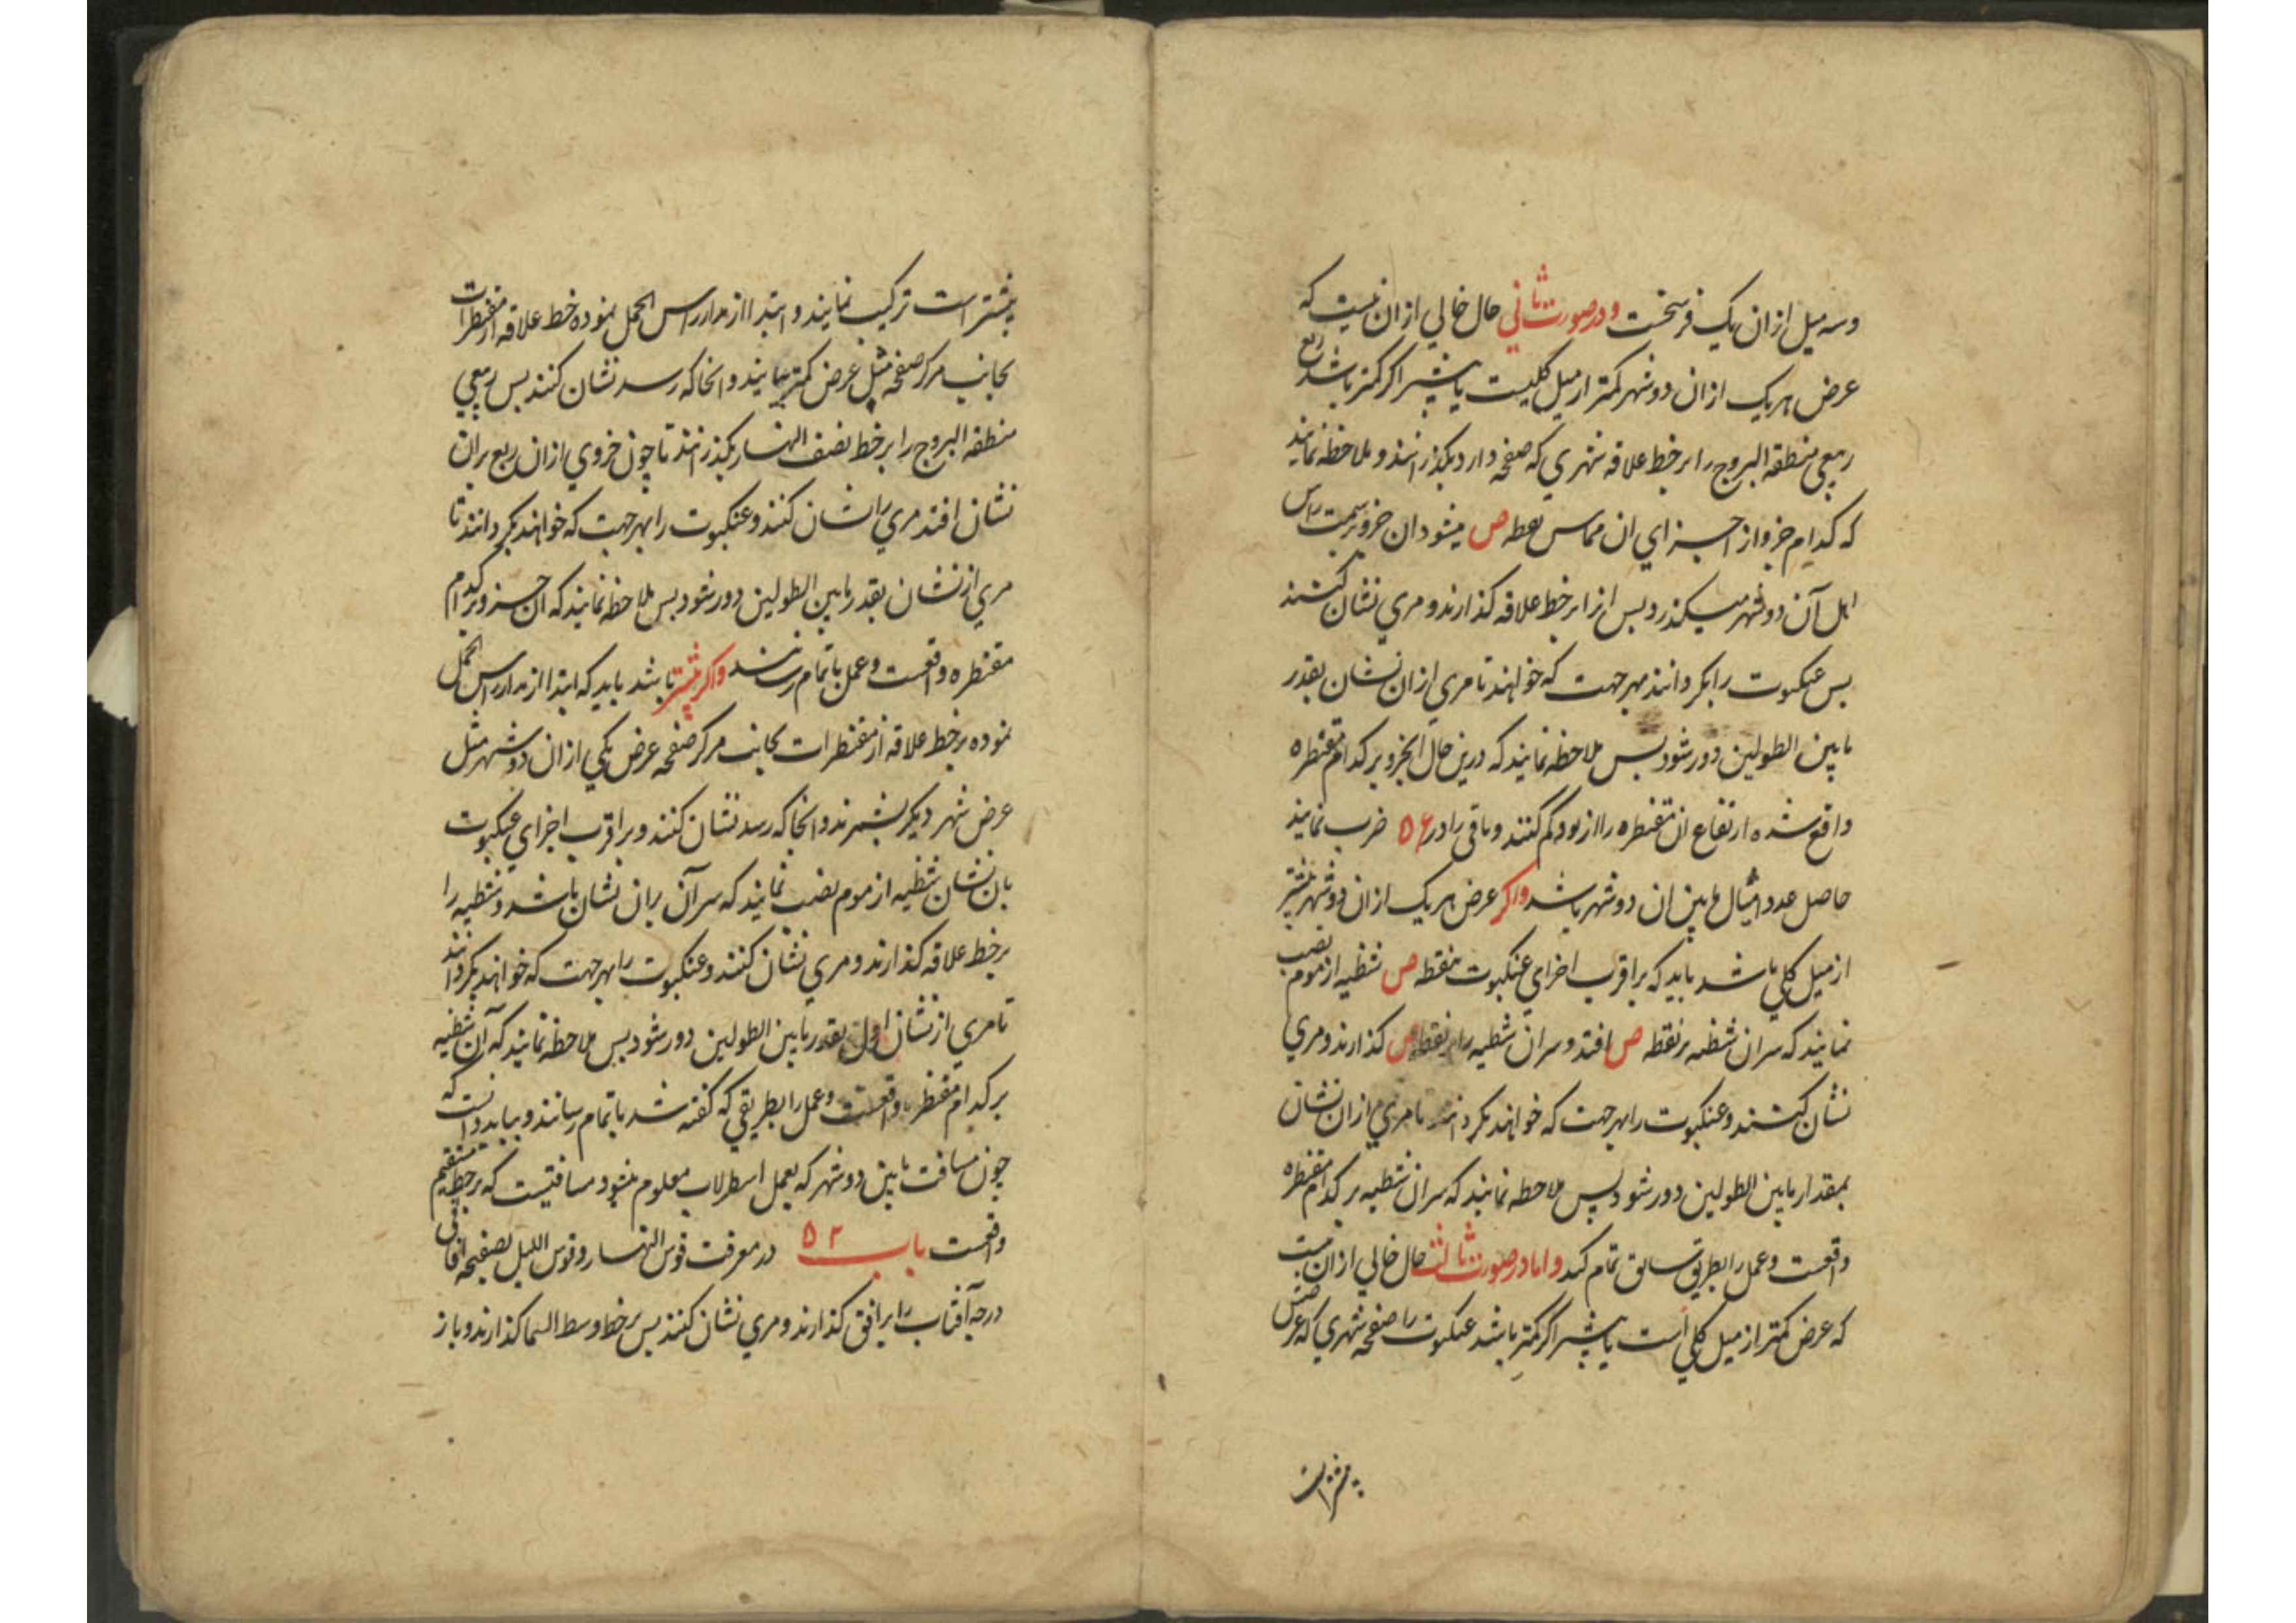 وسه میل ازان یک فرسخست ودرصورت ثاني حال خالي ازان نیست که
عرض هریک ازان دو شهر کمتر از میل کلیست یا بیشتر اکر کمتر باشد ربع
ربیعي منطقة البروج را بر خط علاقه شهري که صفحه دارد بکذرانند و ملاحظه نمایند
که کدام جزو از اجزاي ان مماس نقطه ص میشود ان جزو بر سمت راس
اهل آن دو شهر میکذرد پس انرا بر خط علاقه کذارند و مري نشان کنند
پس عنکبوت را بکردانند بهر جهت که خواهند تا مري ازان نشان بقدر
مابین الطولین دور شود پس ملاحظه نمایند که درین حال انجزو بر کدام مقنطره
واقع شده ارتفاع ان مقنطره را از نود کم کنند و باقي را در ۵۶ ضرب نمایند
حاصل عدد امیال مابین ان دو شهر باشد واکر عرض هریک ازان دو شهر بیشتر
از میل کلي باشد باید که بر اقرب اجزاي عنکبوت بنقطه ص شظیه از موم نصب
نمایند که سر ان شظیه بر نقطه ص افتد و سر ان شظیه را بر نقطه ص کذارند و مري
نشان کنند و عنکبوت را بهر جهت که خواهند بکردانند تا مري ازان نشان
بمقدار مابین الطولین دور شود پس ملاحظه نمایند که سر ان شظیه بر کدام مقنطره
واقعست و عمل را بطریق سابق تمام کند واما درصورت ثالث حال خالي ازان نیست
که عرض کمتر از میل کلي است یا بیشتر اکر کمتر باشد عنکبوت را صفحه شهري که عرضش
بیشتر است
بیشتر است ترکیب نمایند و ابتدا از مدار راس الحمل نموده خط علاقه از مقنطرات
بجانب مرکز صفحه مثل عرض کمتر بیایند و انجا که رسد نشان کنند پس ربیعي
منطقة البروج را بر خط نصف النهار بکذرانند تا چون جزوي ازان ربع بران
نشان افتد مري را نشان کنند و عنکبوت را بهر جهت که خواهند بکردانند تا
مري از نشان بقدر مابین الطولین دور شود پس ملاحظه نمایند که ان جزو بر کدام
مقنطره واقعست و عمل باتمام رسانند واکر بیشتر باشد باید که ابتدا از مدار راس الحمل
نموده بر خط علاقه از مقنطرات بجانب مرکز صفحه عرض یکي ازان دو شهر مثل
عرض شهر دیکر بشمرند و انجا که رسد نشان کنند و بر اقرب اجزاي عنکبوت
بان نشان شظیه از موم نصب نمایند که سر آن بران نشان باشد و شظیه را
بر خط علاقه کذارند و مري نشان کنند و عنکبوت را بهر جهت که خواهند بکردانند
تا مري از نشان اول بقدر مابین الطولین دور شود پس ملاحظه نمایند که آن شظیه
بر کدام مقنطره واقعست و عمل را بطریقي که کفته شد باتمام رسانند و بباید دانست که
چون مسافت مابین دو شهر که بعمل اسطرلاب معلوم میشود مسافتیست که بر خط مستقیم
واقعست باب ۵۲ در معرفت قوس النهار و قوس اللیل بصفیحه افاقي
درجه آفتاب را بر افق کذارند و مري نشان کنند پس بر خط وسط السما کذارند و باز